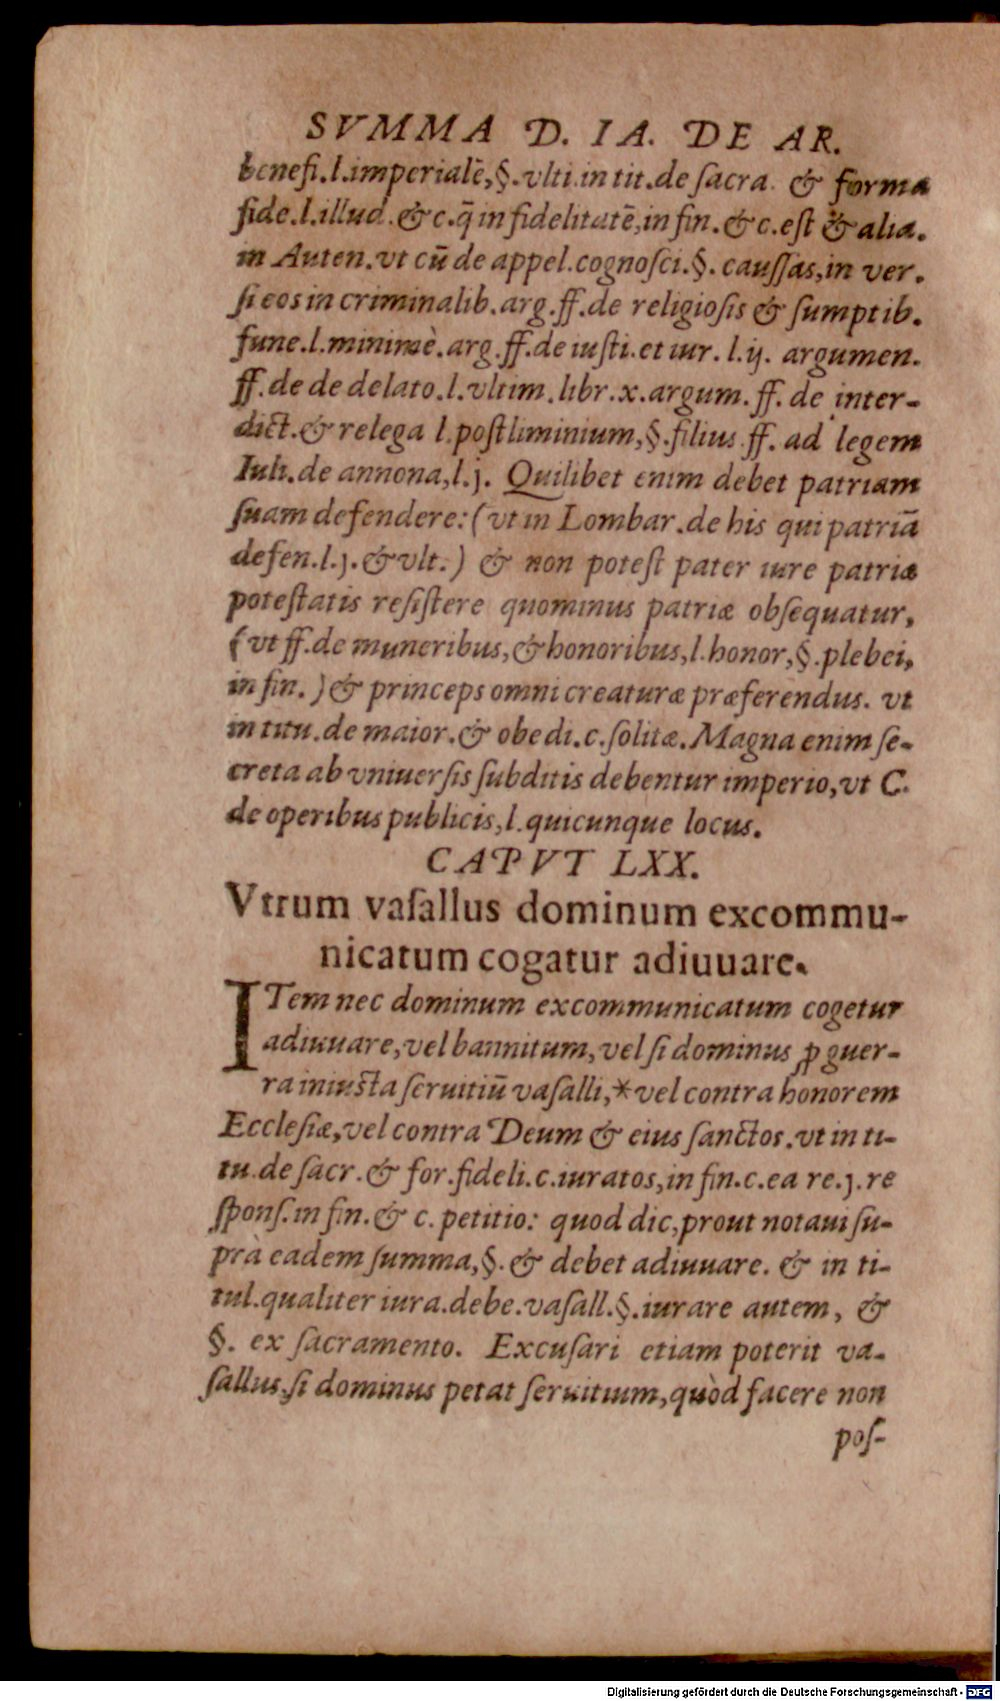 SVMMA D. IA. DE AR.
benefi.l.imperialē,§.vlti.in tit.de ſacra. & forma
fide.l.illud.&c.q̄ in fidelitatē,in fin.&c.eſt & alia.
in Auten.vt cū de appel.cognoſci.§. cauſſas,in ver.
ſi eos in criminalib.arg.ff.de religioſis & ſumptib.
fune.l.minimè.arg.ff.de iuſti.et iur. l.ij. argumen.
ff.de de delato.l.vltim.libr.x.argum.ff. de inter-
dict.& relega l.poſtliminium,§.filius.ff. ad legem
Iuli.de annona,l.j. Quilibet enim debet patriam
ſuam defendere:(vt in Lombar.de his qui patriā
defen.l.j.& vlt.) & non poteſt pater iure patriæ
poteſtatis reſiſtere quominus patriæ obſequatur,
(vt ff.de muneribus,& honoribus,l.honor,§.plebei,
in fin.) & princeps omni creaturæ præferendus. vt
in titu.de maior.& obedi.c.ſolitæ.Magna enim ſe-
creta ab vniuerſis ſubditis debentur imperio,vt C.
de operibus publicis,l.quicunque locus.
CAPVT LXX.
Vtrum vaſallus dominum excommu-
nicatum cogatur adiuuare.
ITem nec dominum excommunicatum cogetur
adiuuare,vel bannitum,vel ſi dominus ꝓ guer-
ra iniuſta ſeruitiū vaſalli,*vel contra honorem
Eccleſiæ,vel contra Deum & eius ſanctos.vt in ti-
tu.de ſacr.& for.fideli.c.iuratos,in fin.c.ea re.j.re
ſponſ.in fin.& c.petitio: quod dic,prout notaui ſu-
prà eadem ſumma,§.& debet adiuuare. & in ti-
tul.qualiter iura.debe.vaſall.§.iurare autem, &
§. ex ſacramento. Excuſari etiam poterit va-
ſallus,ſi dominus petat ſeruitium,quòd facere non
poſ-
Digitalisierung gefördert durch die Deutsche Forschungsgemeinschaft - DFG